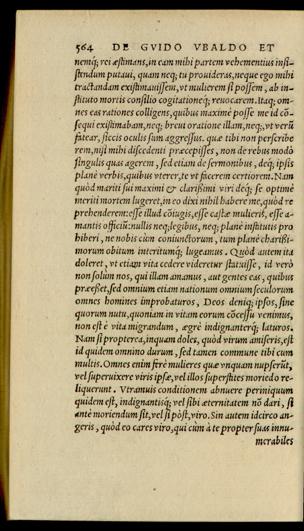 564 DE GVIDO VBALDO ET
nemq́; rei æstimans, in eam mihi partem vehementius insi-
stendum putaui, quam neq; tu prouideras, neque ego mihi
tractandam existimauissem, vt mulierem si possem, ab in-
stituto mortis consilio cogitationeq́; reuocarem. Itaq; om-
nes eas rationes colligens, quibus maximè posse me id cō-
sequi existimabam, neq; breui oratione illam, neq;, vt verū
fatear, siccis oculis sum aggressus. quæ tibi non perscribe
rem, nisi mihi discedenti præcepisses, non de rebus modò
singulis quas agerem, sed etiam de sermonibus, deq́; ipsis
planè verbis, quibus vterer, te vt facerem certiorem. Nam
quòd mariti sui maximi & clarissimi viri deq́; se optimè
meriti mortem lugeret, in eo dixi nihil habere me, quòd re
prehenderem: esse illud cōiugis, esse castæ mulieris, esse a-
mantis officiū: nullis neq; legibus, neq; planè institutis pro
hiberi, ne nobis cùm coniunctorum, tum planè charissi-
morum obitum interitumq́; lugeamus. Quòd autem ita
doleret, vt etiam vita cedere videretur statuisse, id verò
non solùm nos, qui illam amamus, aut gentes eas, quibus
præesset, sed omnium etiam nationum omnium seculorum
omnes homines improbaturos, Deos deniq; ipsos, sine
quorum nutu, quoniam in vitam eorum cōcessu venimus,
non est è vita migrandum, ægrè indignanterq́; laturos.
Nam si propterea, inquam doles, quòd virum amiseris, est
id quidem omnino durum, sed tamen commune tibi cum
multis. Omnes enim ferè mulieres quæ vnquam nupserūt,
vel superuixere viris ipsæ, vel illos superstites moriendo re-
liquerunt. Vtramuis conditionem abnuere periniquum
quidem est, indignantisq́; vel sibi æternitatem nō dari, si
antè moriendum sit, vel si pòst, viro. Sin autem idcirco an-
geris, quòd eo cares viro, qui cùm à te propter suas innu-
merabiles